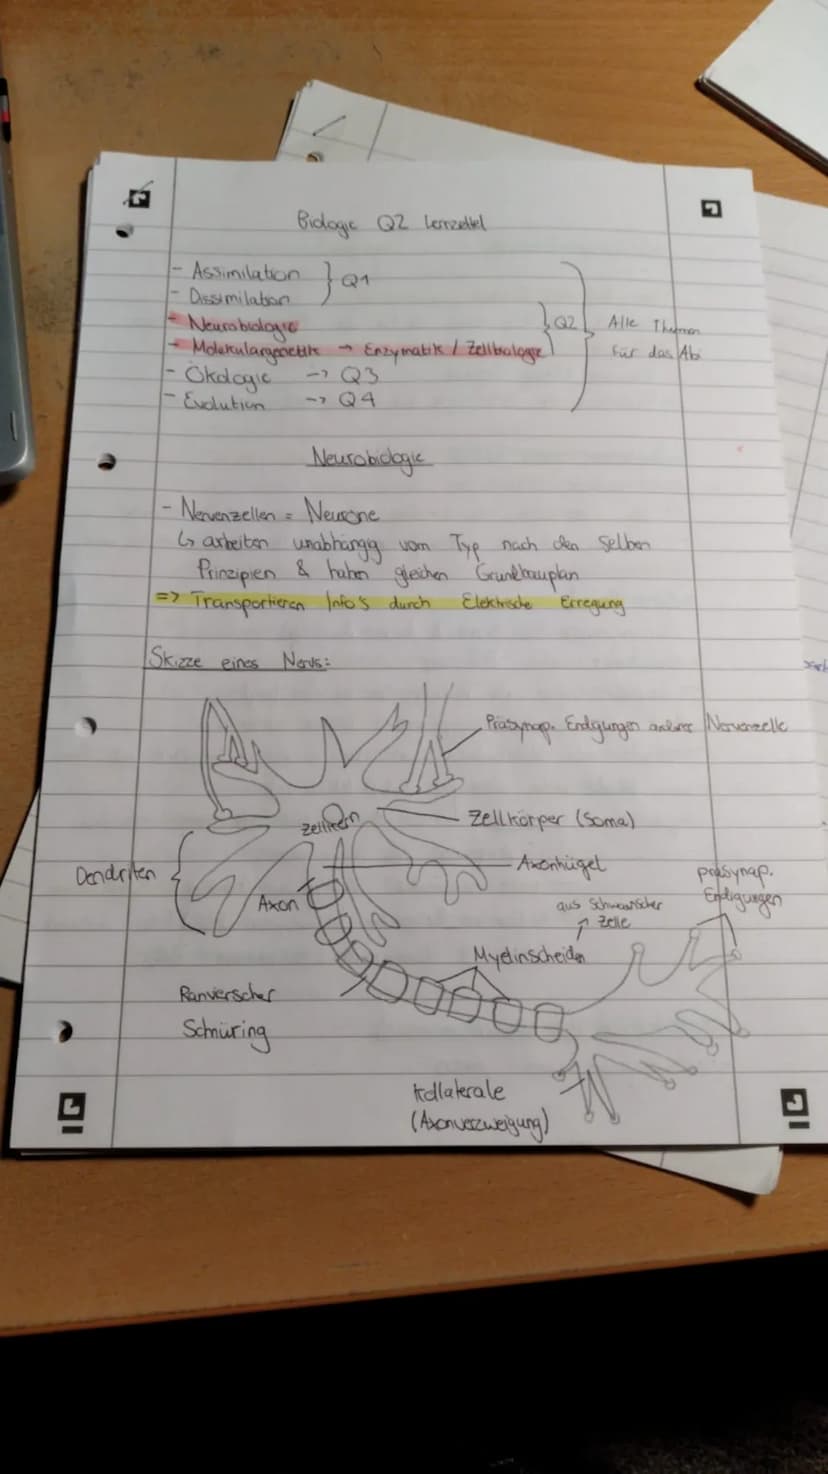 Biologie Q2 Lernzettel
- Assimilation
- Dissimilation
} Q1
- Neurobiologie
- Molekulargenetik → Enzymatik / Zellbiologie
} Q2
- Ökologie -> Q3
- Evolution -> Q4
Alle Themen
für das Abi
Neurobiologie
- Nervenzellen = Neurone
↳ arbeiten unabhängig vom Typ nach den Selben
Prinzipien & haben gleichen Grundbauplan
=> Transportieren Info's durch Elektrische Erregung
Skizze eines Nervs:
Präsynap. Endigungen anderer Nervenzelle
Zellkern
Zellkörper (Soma)
Dendriten
Axonhügel
präsynap.
Endigungen
Axon
aus Schwannscher
↗ Zelle
Myelinscheiden
Ranvierscher
Schnürring
Kollaterale
(Axonverzweigung)